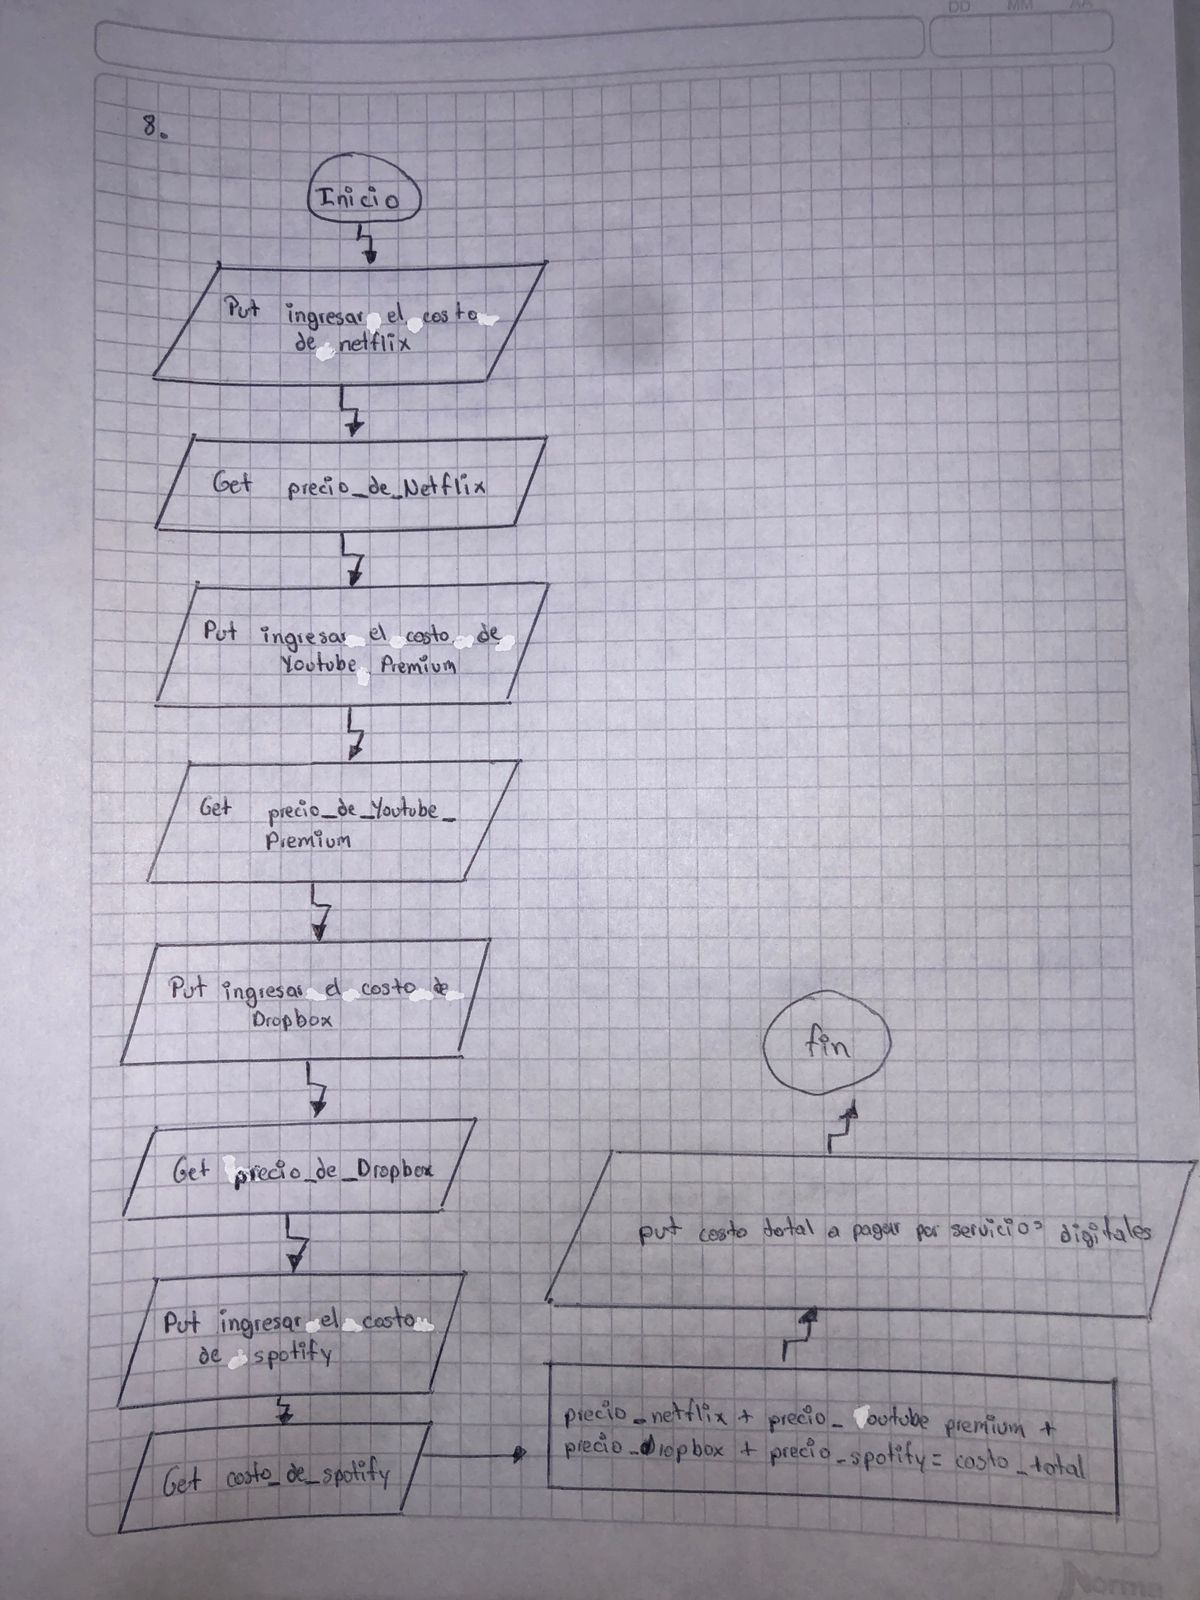 DD MM AA
8.
Inicio
Put ingresar el costo
de netflix
Get precio_de_Netflix
Put ingresar el costo de
Youtube Premium
Get precio_de_Youtube_
Premium
Put ingresar el costo de
Dropbox
Get precio_de_Dropbox
Put ingresar el costo
de spotify
Get costo_de_spotify
precio_netflix + precio_Youtube premium +
precio_dropbox + precio_spotify = costo_total
put costo total a pagar por servicios digitales
fin
Norma